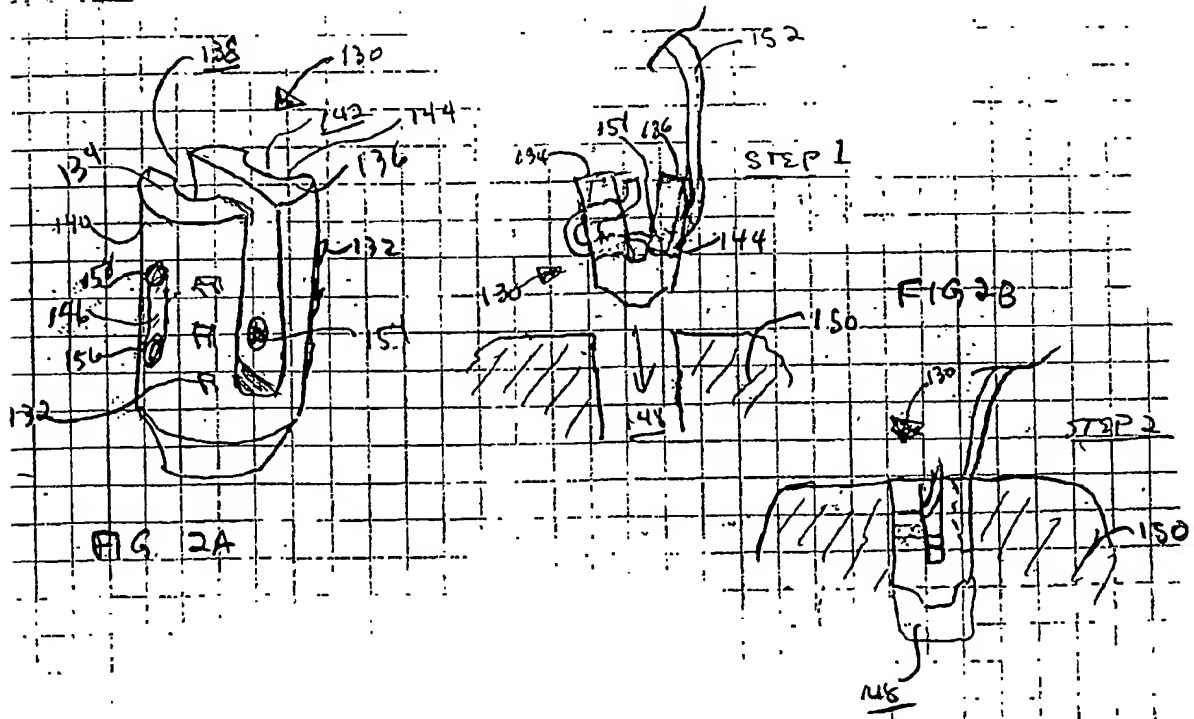 138
130
142
144
134
136
140
132
154
146
156
15
132
FIG. 2A
152
151
136
134
STEP 1
144
130
FIG 2B
150
148
130
STEP 2
150
148